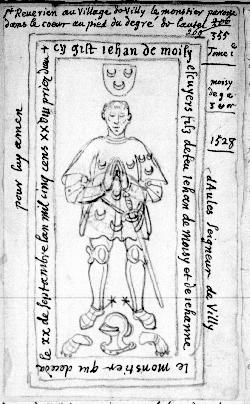 St Reverien au Village de Villy le monstier paroisse
dans le coeur au pied du degré de l'autel
355
Tome 1
moisy
de gue
3 e or
1528
+ cy gist iehan de moisy
escuyers fils de feu iehan de moisy et de iehanne
d'Aules seigneur de Villy
le monstier qui deceda
le xx de septambre lan mil cinq cens xxviii pries dieu
pour luy amen